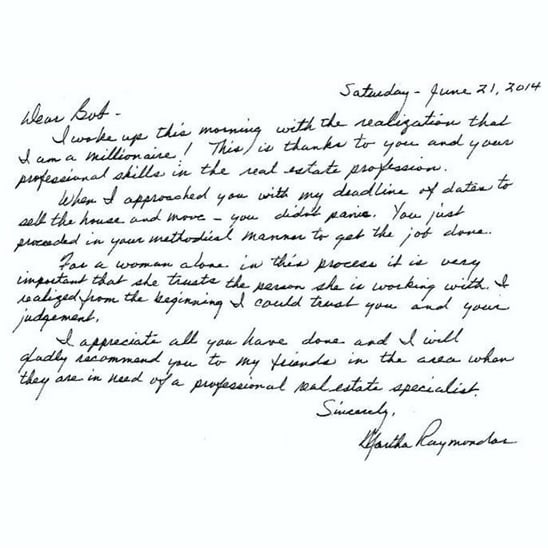 Saturday - June 21, 2014
Dear Bob -
I woke up this morning with the realization that
I am a millionaire! This is thanks to you and your
professional skills in the real estate profession.
When I approached you with my deadline of dates to
sell the house and move - you didnt panic. You just
proceeded in your methodical manner to get the job done.
For a woman alone in this process it is very
important that she trusts the person she is working with. I
realized from the beginning I could trust you and your
judgement.
I appreciate all you have done and I will
gladly recommend you to my friends in the area when
they are in need of a professional real estate specialist.
Sincerely,
Martha